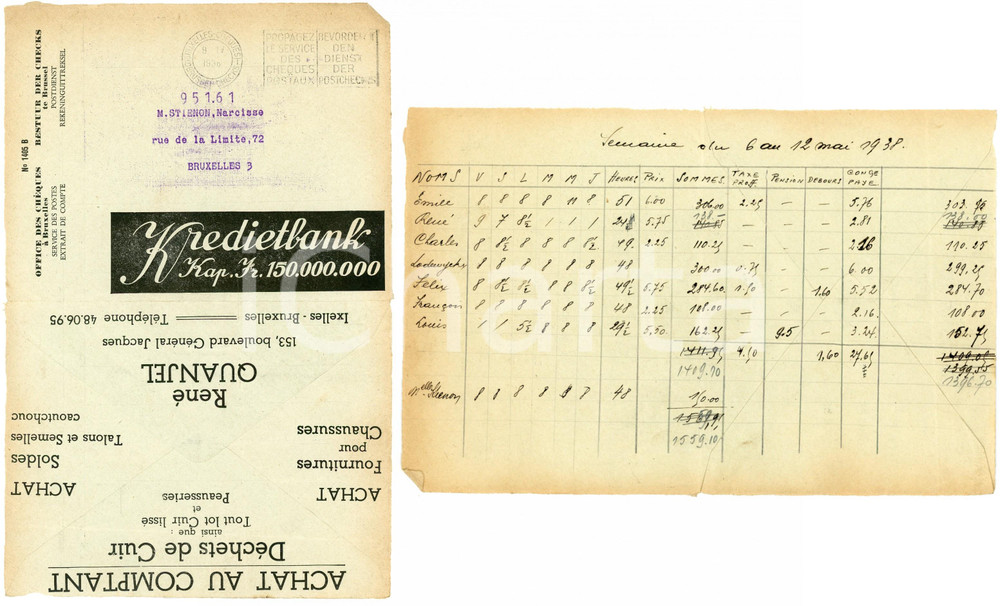 OFFICE DES CHÈQUES
à Bruxelles
SERVICE DES POSTES
EXTRAIT DE COMPTE
No 1405 B
BESTUUR DER CHECKS
te Brussel
POSTDIENST
REKENINGUITTREKSEL
1938
PROPAGEZ
LE SERVICE
DES
CHEQUES
POSTAUX
BEVORDERT
DEN
DIENST
DER
POSTCHECKS
95161
M.STIENON, Narcisse
rue de la Limite,72
BRUXELLES 3
Kredietbank
Kap. Fr. 150.000.000
ACHAT AU COMPTANT
Déchets de Cuir
ainsi que :
Tout lot Cuir lissé
et
Peausseries
ACHAT
Fournitures
pour
Chaussures
ACHAT
Soldes
Talons et Semelles
caoutchouc
René
QUANJEL
153, boulevard Général Jacques
Ixelles - Bruxelles Téléphone 48.06.95
iCharta
Semaine du 6 au 12 mai 1938.
NOMS V S L M M J HEURES PRIX SOMMES TAXE PROF. PENSION DEBOURS CONGE PAYE
Emile 8 8 8 8 11 8 51 6.00 306.00 2.25 — — 5.76 303.75
138.— 138.00
René 9 7 8½ 1 1 1 24½ 5.75 140.88 — — — 2.81 140.88
Charles 8 8½ 8 8 8½ 8 49 2.25 110.25 — — — 2.16 110.25
8 8 8 8 8 8 48 300.00 0.75 — — 6.00 299.25
Félix 8 8½ 8½ 8 8 8 49½ 5.75 284.60 1.50 — 1.60 5.52 284.70
François 8 8 8 8 8 8 48 2.25 108.00 — — 2.16 108.00
Louis 1 1 5½ 8 8 8 29½ 5.50 162.25 — 9.5 — 3.24 152.75
1411.95 4.50 1.60 27.65 1409.08
1409.10 1399.55
1396.70
Melle Stienon 8 8 8 8 8 8 48 150.00
1559.10